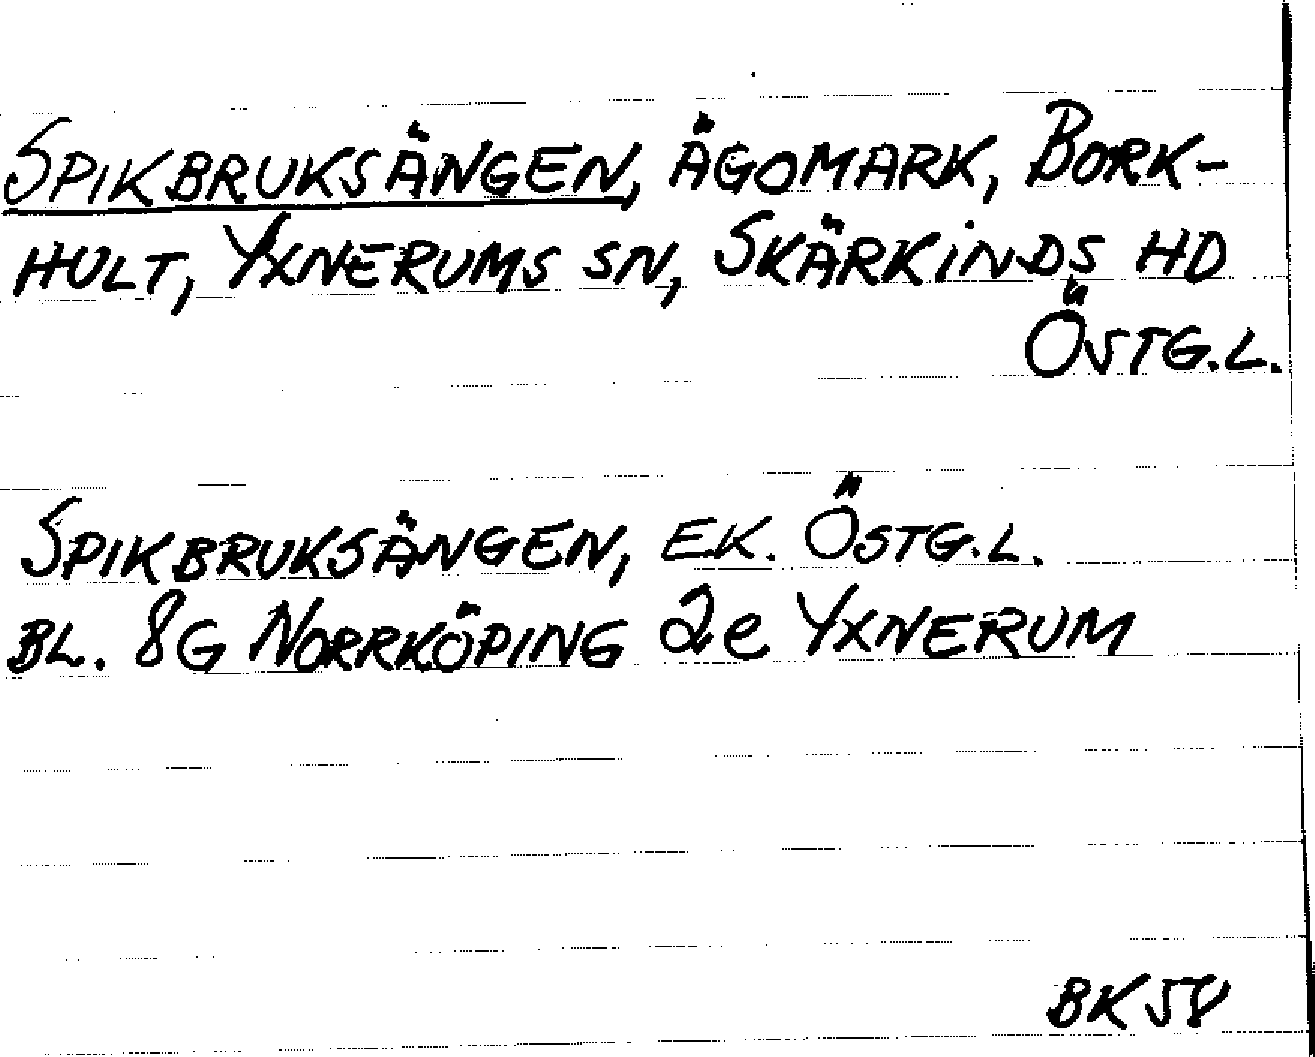 SPIKBRUKSÄNGEN, ÄGOMARK, BORK-
HULT, YXNERUMS SN, SKÄRKINDS HD
ÖSTG.L.
SPIKBRUKSÄNGEN, EK. ÖSTG.L.
BL. 8G NORRKÖPING 2e YXNERUM
BK 58